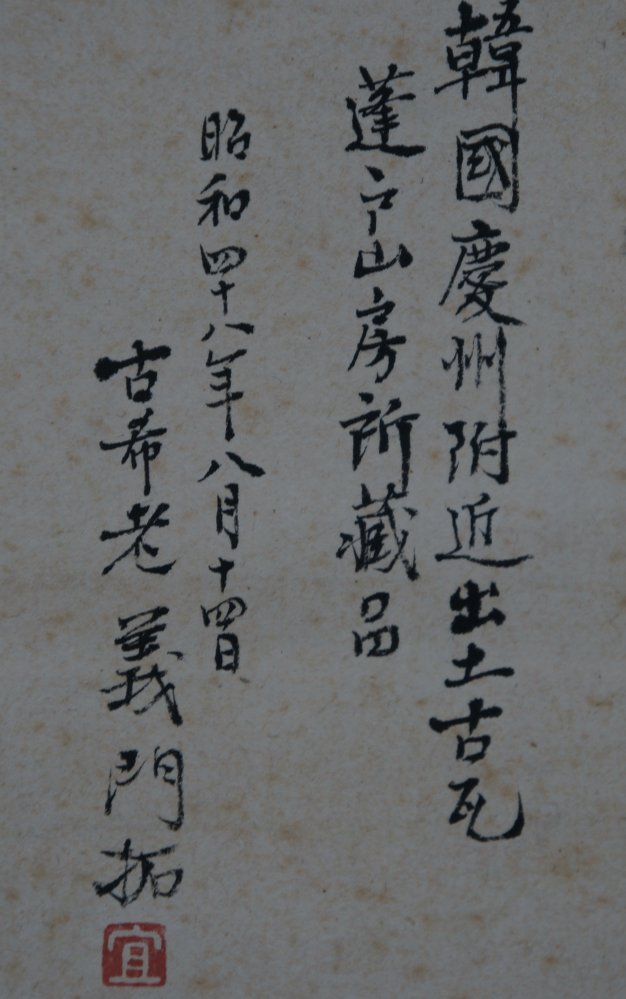 韓國慶州附近出土古瓦
蓬戸山房所藏品
昭和四十八年八月十四日
古希老 義門拓
宜